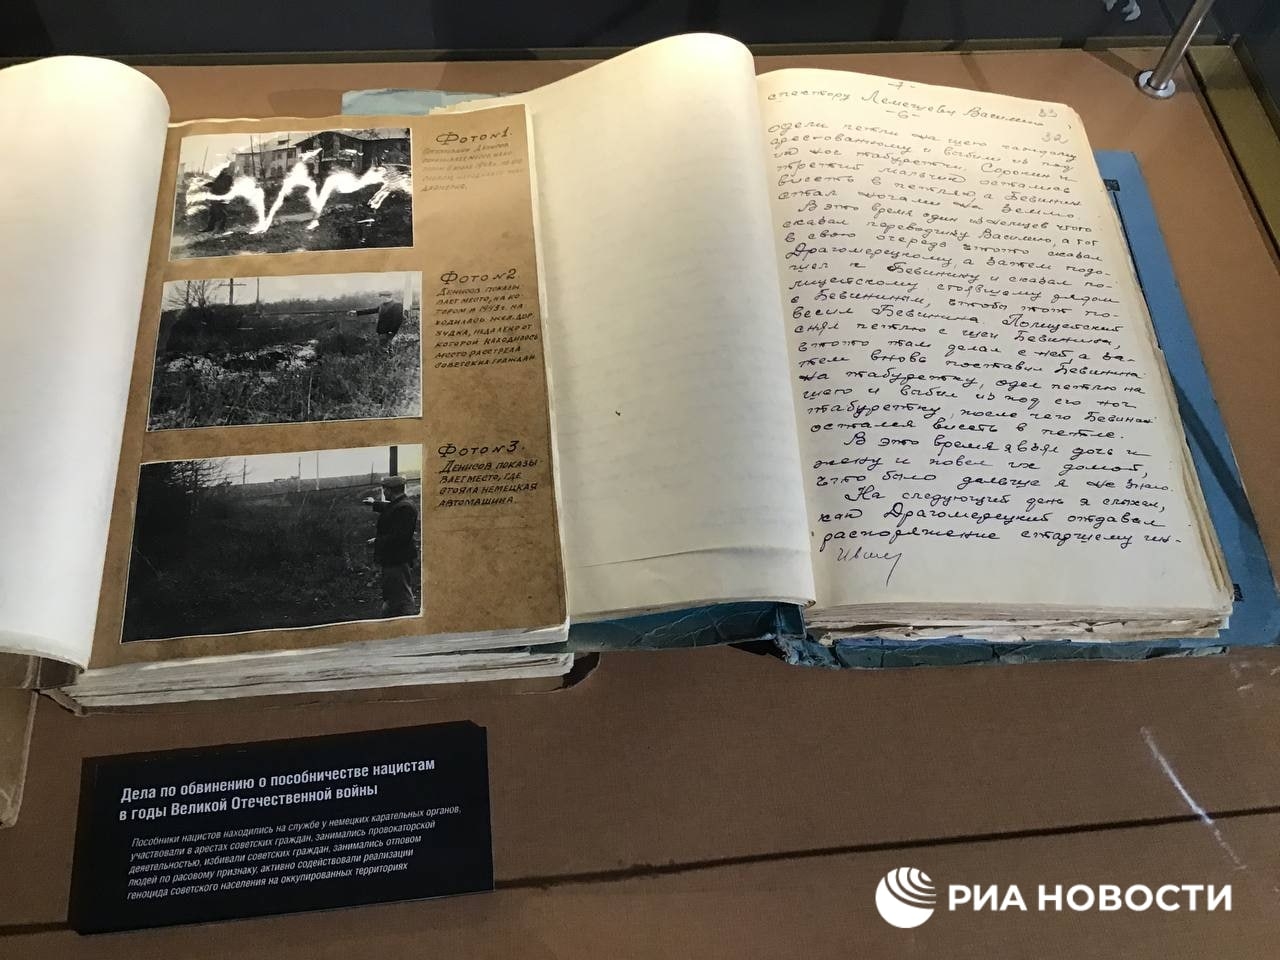 Фото №1.
Фото №2.
Денисов показы-
вает место, на ко-
тором в 1943 г. на-
ходилась жел. дор.
будка, недалеко от
которой находилось
место расстрела
советских граждан.
Фото №3.
Денисов показы-
вает место, где
стояла немецкая
автомашина.
-7-
спектору Лемешеву Василию
33
-6-
32
одели петли на шею каждому
арестованному и выбили из под
их ног табуретки. Сорокин и
третий мальчик остались
висеть в петлях, а Бевинин
стал ногами на землю.
В это время один из немцев что-то
сказал переводчику Василию, а тот
в свою очередь что-то сказал
Драгомерецкому, а затем подо-
шел к Бевинину и сказал по-
лицейскому стоявшему рядом
с Бевининым, чтобы этот по-
весил Бевинина. Полицейский
снял петлю с шеи Бевинина,
что-то там делал с ней, а за-
тем вновь поставил Бевинина
на табуретку, одел петлю на
шею и выбил из под его ног
табуретку, после чего Бевинин
остался висеть в петле.
В это время я взял дочь и
жену и повел их домой,
что было дальше я не знаю.
На следующий день я слыхал,
как Драгомерецкий отдавал
распоряжение старшему ин-
Дела по обвинению о пособничестве нацистам
в годы Великой Отечественной войны
Пособники нацистов находились на службе у немецких карательных органов,
участвовали в арестах советских граждан, занимались провокаторской
деятельностью, избивали советских граждан, занимались отловом
людей по расовому признаку, активно содействовали реализации
геноцида советского населения на оккупированных территориях
РИА НОВОСТИ